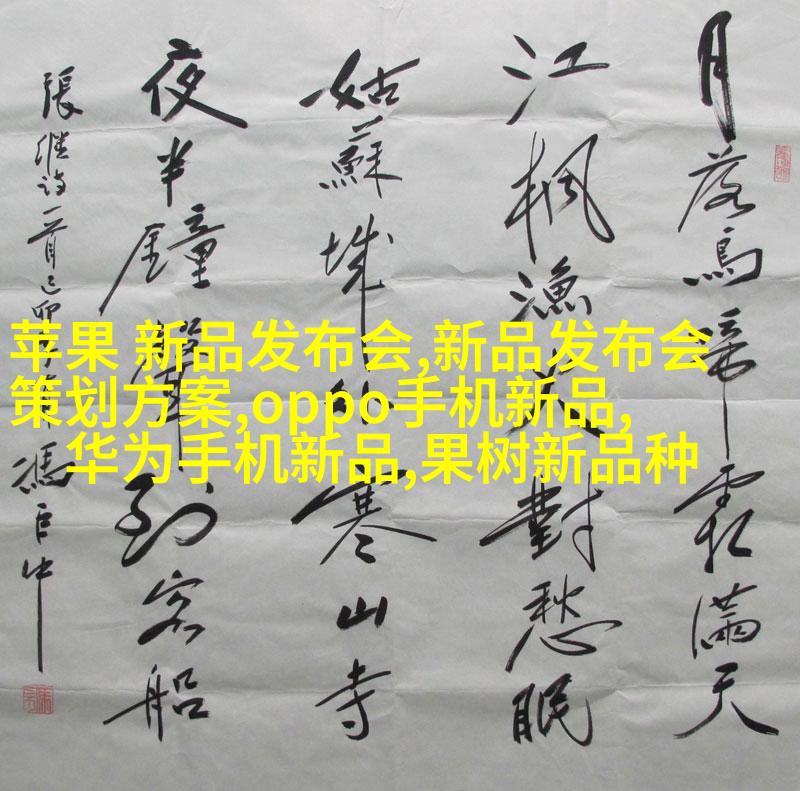 月落烏啼霜滿天
江楓漁火對愁眠
姑蘇城外寒山寺
夜半鐘聲到客船
張继詩一首己卯 馮 中
苹果 新品发布会,新品发布会
策划方案,oppo手机新品,
华为手机新品,果树新品种